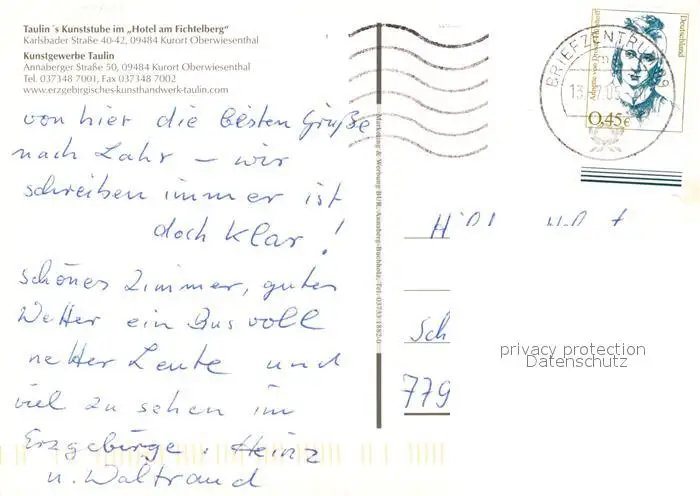 Taulin´s Kunststube im „Hotel am Fichtelberg"
Karlsbader Straße 40-42, 09484 Kurort Oberwiesenthal
Kunstgewerbe Taulin
Annaberger Straße 50, 09484 Kurort Oberwiesenthal
Tel. 037348 7001, Fax 037348 7002
www.erzgebirgisches-kunsthandwerk-taulin.com
von hier die besten Grüße
nach Lahr – wir
schreiben immer ist
doch klar!
schönes Zimmer, gutes
Wetter ein Bus voll
netter Leute und
viel zu sehen im
Erzgebirge. Heinz
u. Waltraud
Marketing & Werbung BUR, Annaberg-Buchholz, Tel. 03733 1882-0
BRIEFZENTRUM 09
13
05
Deutschland
Annette von Droste-Hülshoff
0,45€
Sch
779
privacy protection
Datenschutz